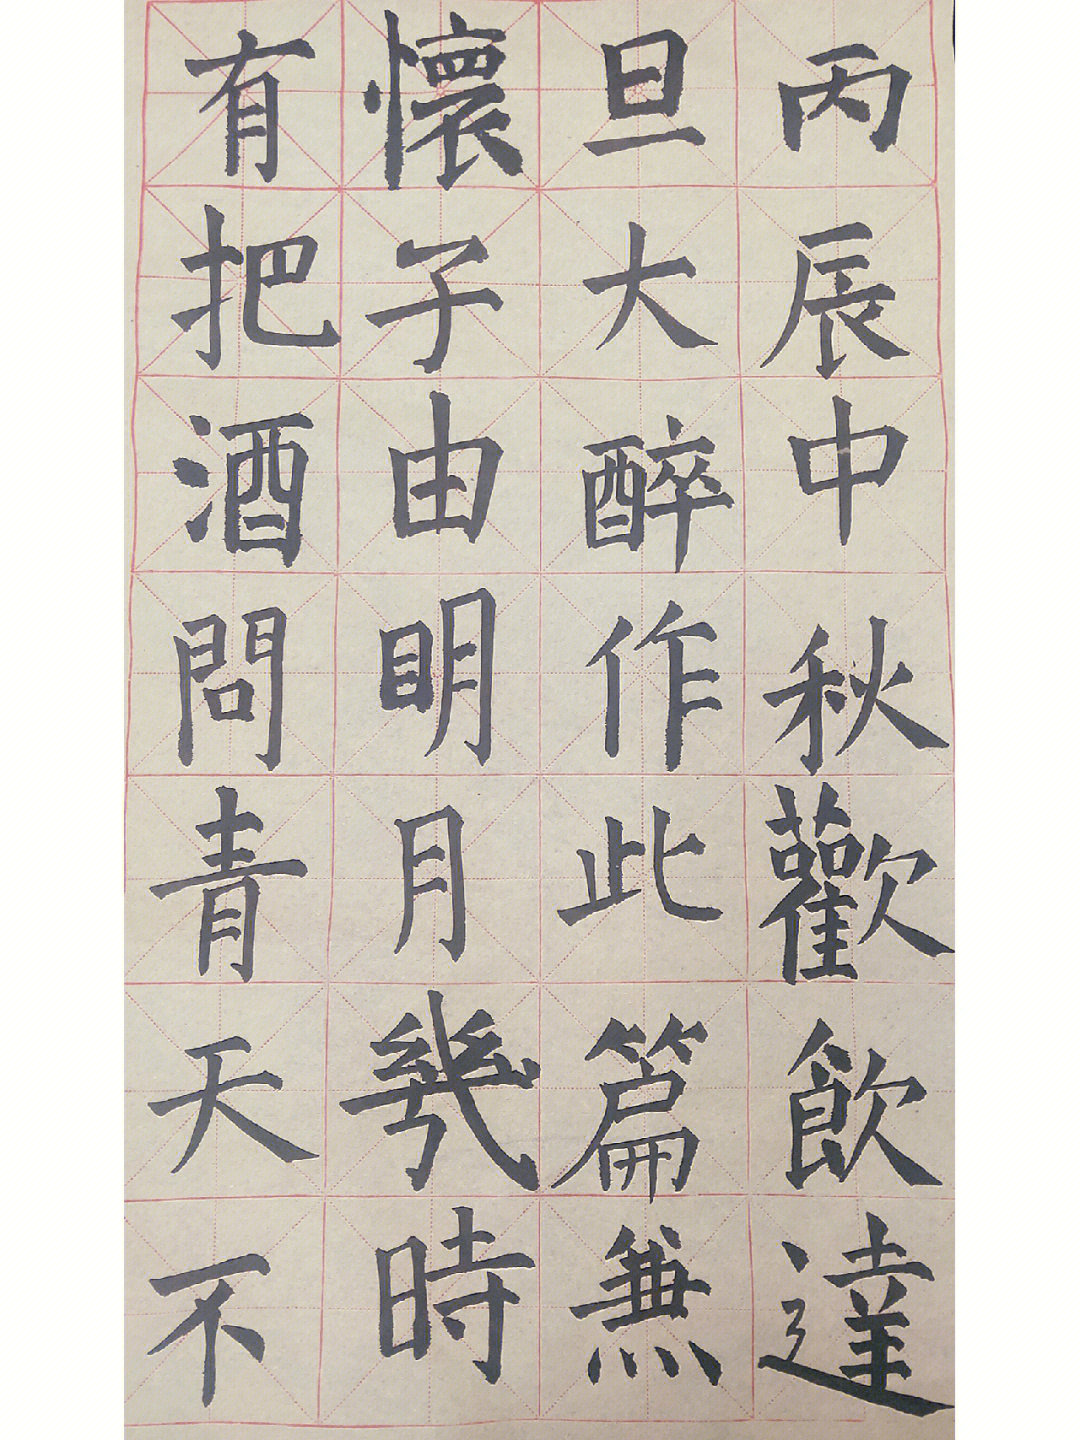 丙辰中秋歡飲達
旦大醉作此篇兼
懷子由明月幾時
有把酒問青天不